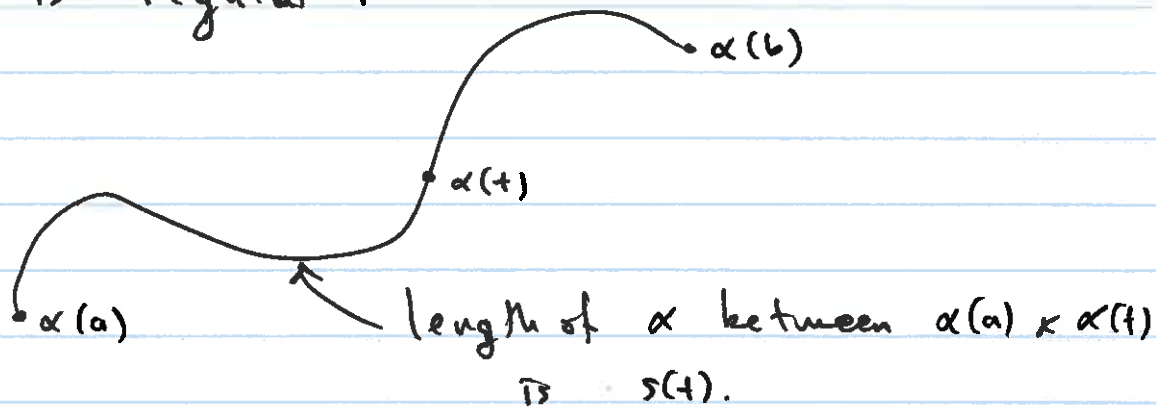 is regular .
α(b)
α(t)
α(a)
length of α between α(a) & α(t)
is s(t).